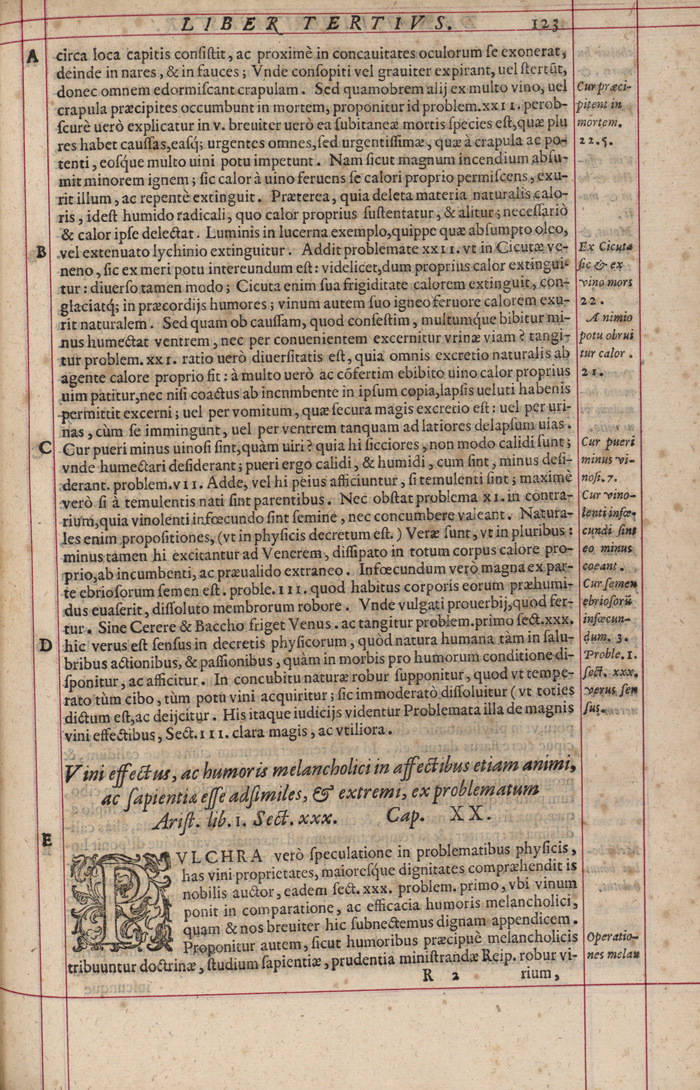 LIBER TERTIVS. 123
A
circa loca capitis consistit, ac proximè in concauitates oculorum se exonerat,
deinde in nares, & in fauces; Vnde consopiti vel grauiter expirant, uel stertūt,
donec omnem edormiscant crapulam. Sed quamobrem alij ex multo vino, uel
crapula præcipites occumbunt in mortem, proponitur id problem. XXII. perob-
scurè uerò explicatur in v. breuiter uerò ea subitaneæ mortis species est, quæ plu
res habet caussas, easq; urgentes omnes, sed urgentissimæ, quæ à crapula ac po-
tenti, eosque multo uini potu impetunt. Nam sicut magnum incendium absu-
mit minorem ignem; sic calor à uino feruens se calori proprio permiscens, exu-
rit illum, ac repentè extinguit. Præterea, quia deleta materia naturalis calo-
ris, idest humido radicali, quo calor proprius sustentatur, & alitur; necessariò
& calor ipse delectat. Luminis in lucerna exemplo, quippe quæ absumpto oleo,
B
vel extenuato lychinio extinguitur. Addit problemate XXII. vt in Cicutæ ve-
neno, sic ex meri potu intereundum est: videlicet, dum proprius calor extingui-
tur: diuerso tamen modo; Cicuta enim sua frigiditate calorem extinguit, con-
glaciatq; in præcordijs humores; vinum autem suo igneo feruore calorem exu-
rit naturalem. Sed quam ob caussam, quod confestim, multumque bibitur mi-
nus humectat ventrem, nec per conuenientem excernitur vrinæ viam? tangi-
tur problem. XXI. ratio uerò diuersitatis est, quia omnis excretio naturalis ab
agente calore proprio fit: à multo uerò ac cōfertim ebibito uino calor proprius
uim patitur, nec nisi coactus ab incumbente in ipsum copia, lapsis ueluti habenis
permittit excerni; uel per vomitum, quæ secura magis excretio est: uel per uri-
nas, cùm se immingunt, uel per ventrem tanquam ad latiores delapsum uias.
C
Cur pueri minus uinosi sint, quàm uiri? quia hi sicciores, non modo calidi sunt;
vnde humectari desiderant; pueri ergò calidi, & humidi, cum sint, minus desi-
derant. problem. VII. Adde, vel hi peius afficiuntur, si temulenti sint; maximè
verò si à temulentis nati sint parentibus. Nec obstat problema XI. in contra-
rium, quia vinolenti infœcundo sint semine, nec concumbere valeant. Natura-
les enim propositiones, (vt in physicis decretum est.) Veræ sunt, vt in pluribus:
minus tamen hi excitantur ad Venerem, dissipato in totum corpus calore pro-
prio, ab incumbenti, ac præualido extraneo. Infœcundum verò magna ex par-
te ebriosorum semen est. proble. III. quod habitus corporis eorum præhumi-
dus euaserit, dissoluto membrorum robore. Vnde vulgati prouerbij, quod fer-
tur. Sine Cerere & Baccho friget Venus. ac tangitur problem. primo sect. XXX.
D
hic verus est sensus in decretis physicorum, quòd natura humana tàm in salu-
bribus actionibus, & passionibus, quàm in morbis pro humorum conditione di-
sponitur, ac afficitur. In concubitu naturæ robur supponitur, quod vt tempe-
rato tùm cibo, tùm potu vini acquiritur; sic immoderato dissoluitur (vt toties
dictum est, ac deijcitur. His itaque iudicijs videntur Problemata illa de magnis
vini effectibus, Sect. III. clara magis, ac vtiliora.
Vini effectus, ac humoris melancholici in affectibus etiam animi,
ac sapientia esse adsimiles, & extremi, ex problematum
Arist. lib. 1. Sect. xxx. Cap. XX.
E
PVLCHRA verò speculatione in problematibus physicis,
has vini proprietates, maioresque dignitates compræhendit is
nobilis auctor, eadem sect. xxx. problem. primo, vbi vinum
ponit in comparatione, ac efficacia humoris melancholici,
quam & nos breuiter hic subnectemus dignam appendicem.
Proponitur autem, sicut humoribus præcipuè melancholicis
tribuuntur doctrinæ, studium sapientiæ, prudentia ministrandæ Reip. robur vi-
R 2 rium,
Cur præci-
pitent in
mortem.
22. 5.
Ex Cicuta
sic & ex
vino mors
22.
A nimio
potu obrui
tur calor.
21.
Cur pueri
minus vi-
nosi. 7.
Cur vino-
lenti infœ-
cundi sint
eo minus
coeant.
Cur semen
ebriosorū
infœcun-
dum. 3.
Proble. 1.
sect. xxx.
verus sen
sus.
Operatio-
nes melan